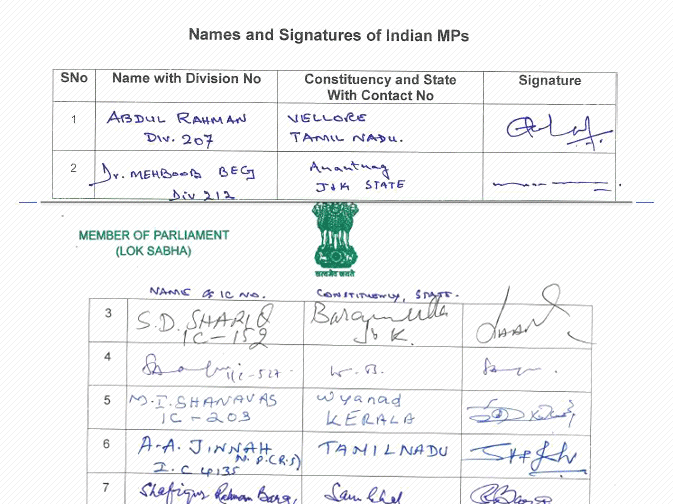 Names and Signatures of Indian MPs
SNo Name with Division No Constituency and State With Contact No Signature
1 ABDUL RAHMAN VELLORE
DIV. 207 TAMIL NADU.
2 Dr. MEHBOOB BEG Anantnag
Div 212 J&K STATE
MEMBER OF PARLIAMENT
(LOK SABHA)
सत्यमेव जयते
NAME & IC NO. CONSTITUENCY, STATE.
3 S.D. SHARIQ Baramulla
IC-152 J&K.
4 W.B.
5 M.I. SHANAVAS Wyanad
IC-203 KERALA
6 A.A. JINNAH M.P.(R.S) TAMILNADU
I.C 4135
7 Shafiqur Rahman Barq, Sambhal